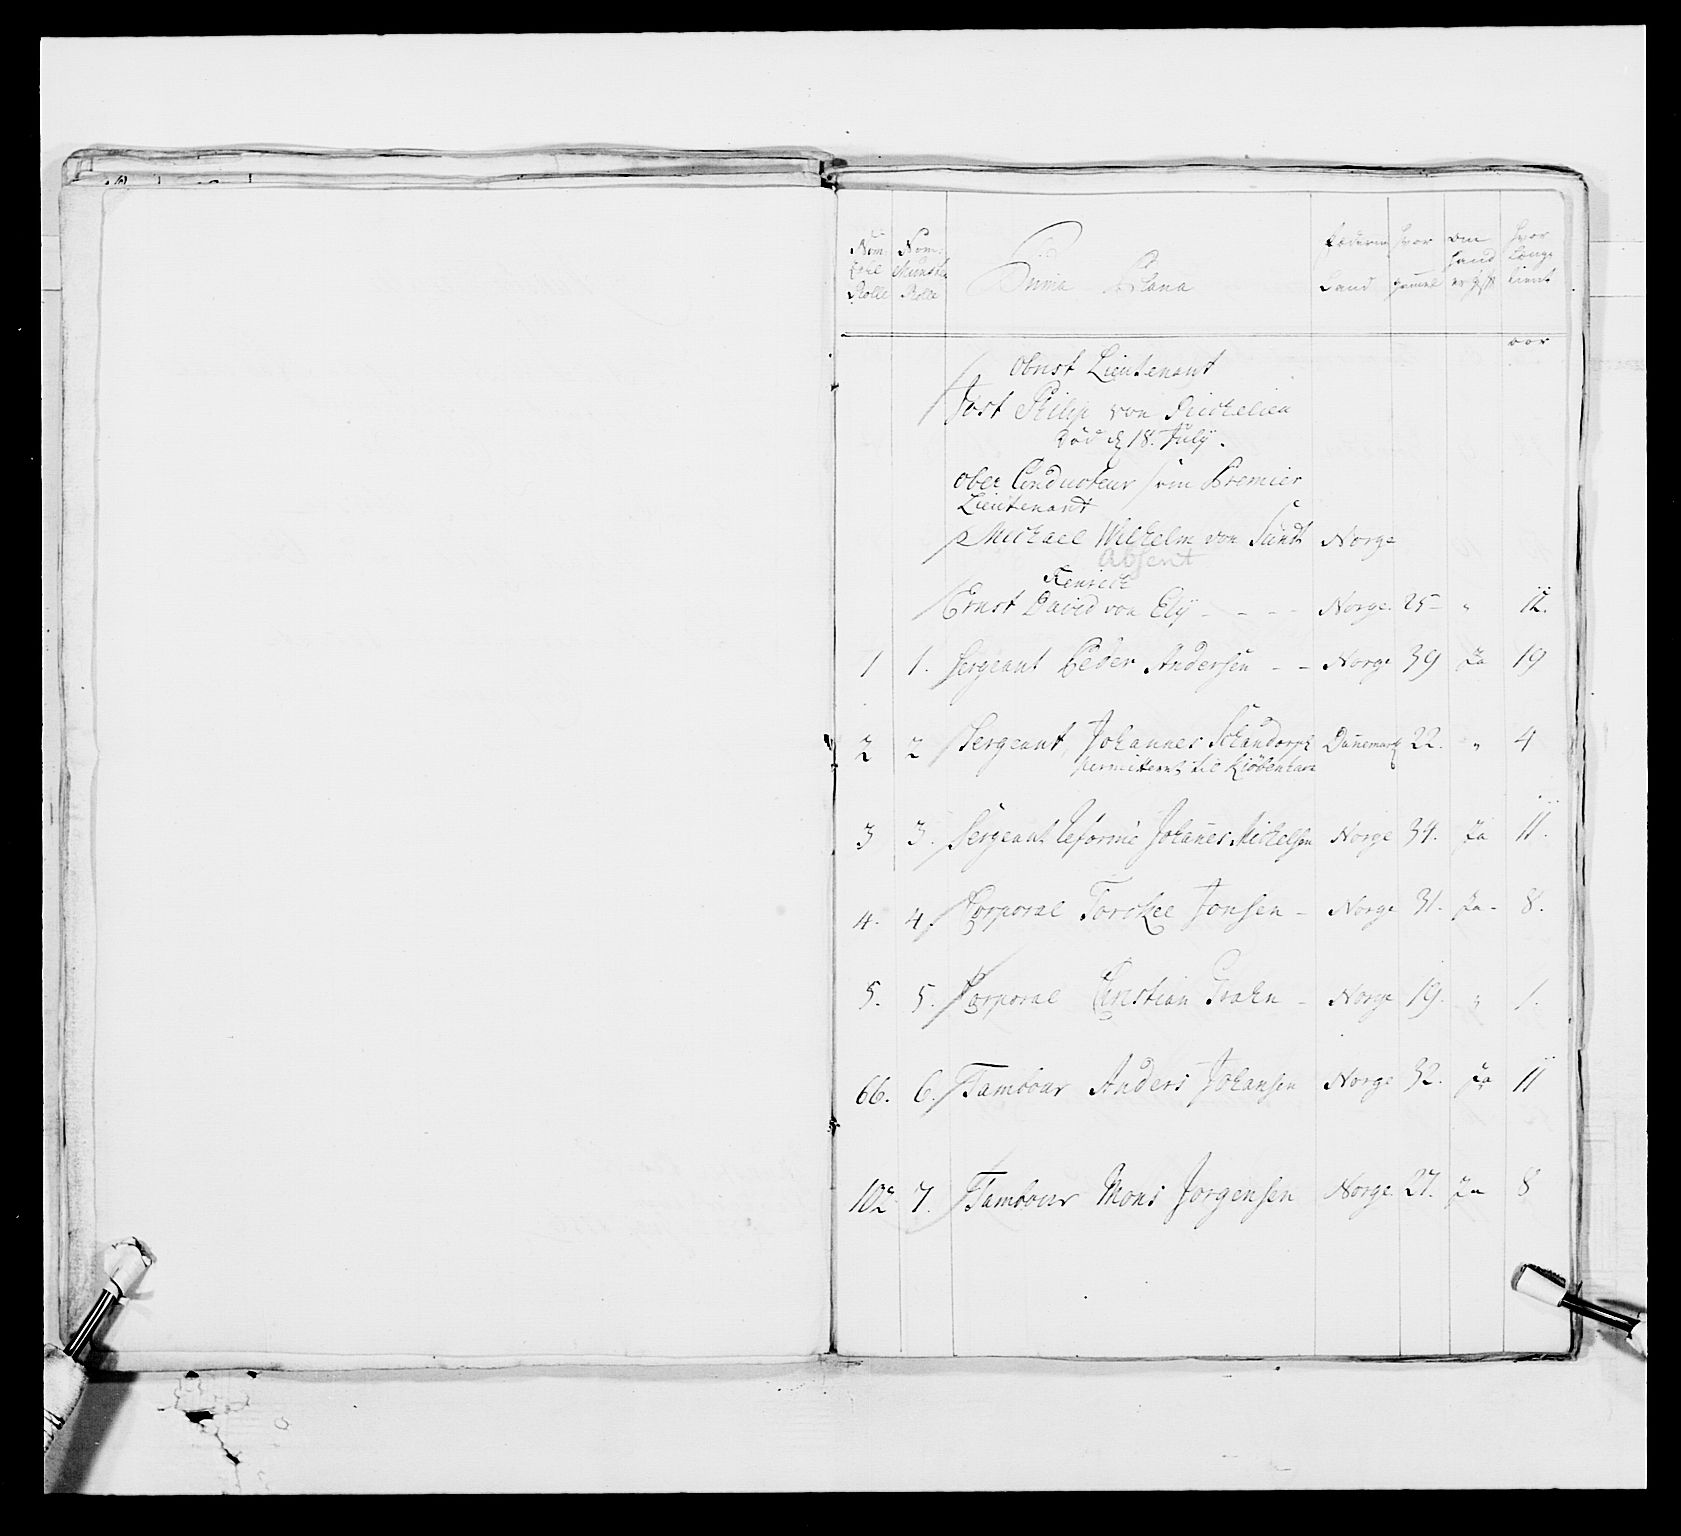 Num: Rolle
Num: Munster Rolle
Prima Plana
Fæderne Land
hvor gamel
om hand er gift
hvor længe tient
aar
Obrist Lieutenant
Jost Philip von Richelieu
død d 18. July.
Ober Conducteur som Premier
Lieutenant
Michael Wilhelm von Sundt Norge
Absent
Fenrick
Ernst David von Ely - - - Norge. 25 - " 12.
1 1. Sergeant Peder Andersen - - Norge 39 Ja 19
2 2 Sergeant Johannes Schandorph Danemark 22. " 4
permitteret til Kiöbenhavn
3 3. Sergeant Reformé Johanes Michelsen Norge 34. Ja 11.
4. 4 Corporal Torckel Jonsen - Norge 31. Ja - 8.
5. 5. Corporal Christian Grahn - Norge 19. " 1.
66. 6. Tambour Anders Johansen Norge 32. Ja 11
102 7. Tambour Mons Jorgensen Norge. 27. Ja 8